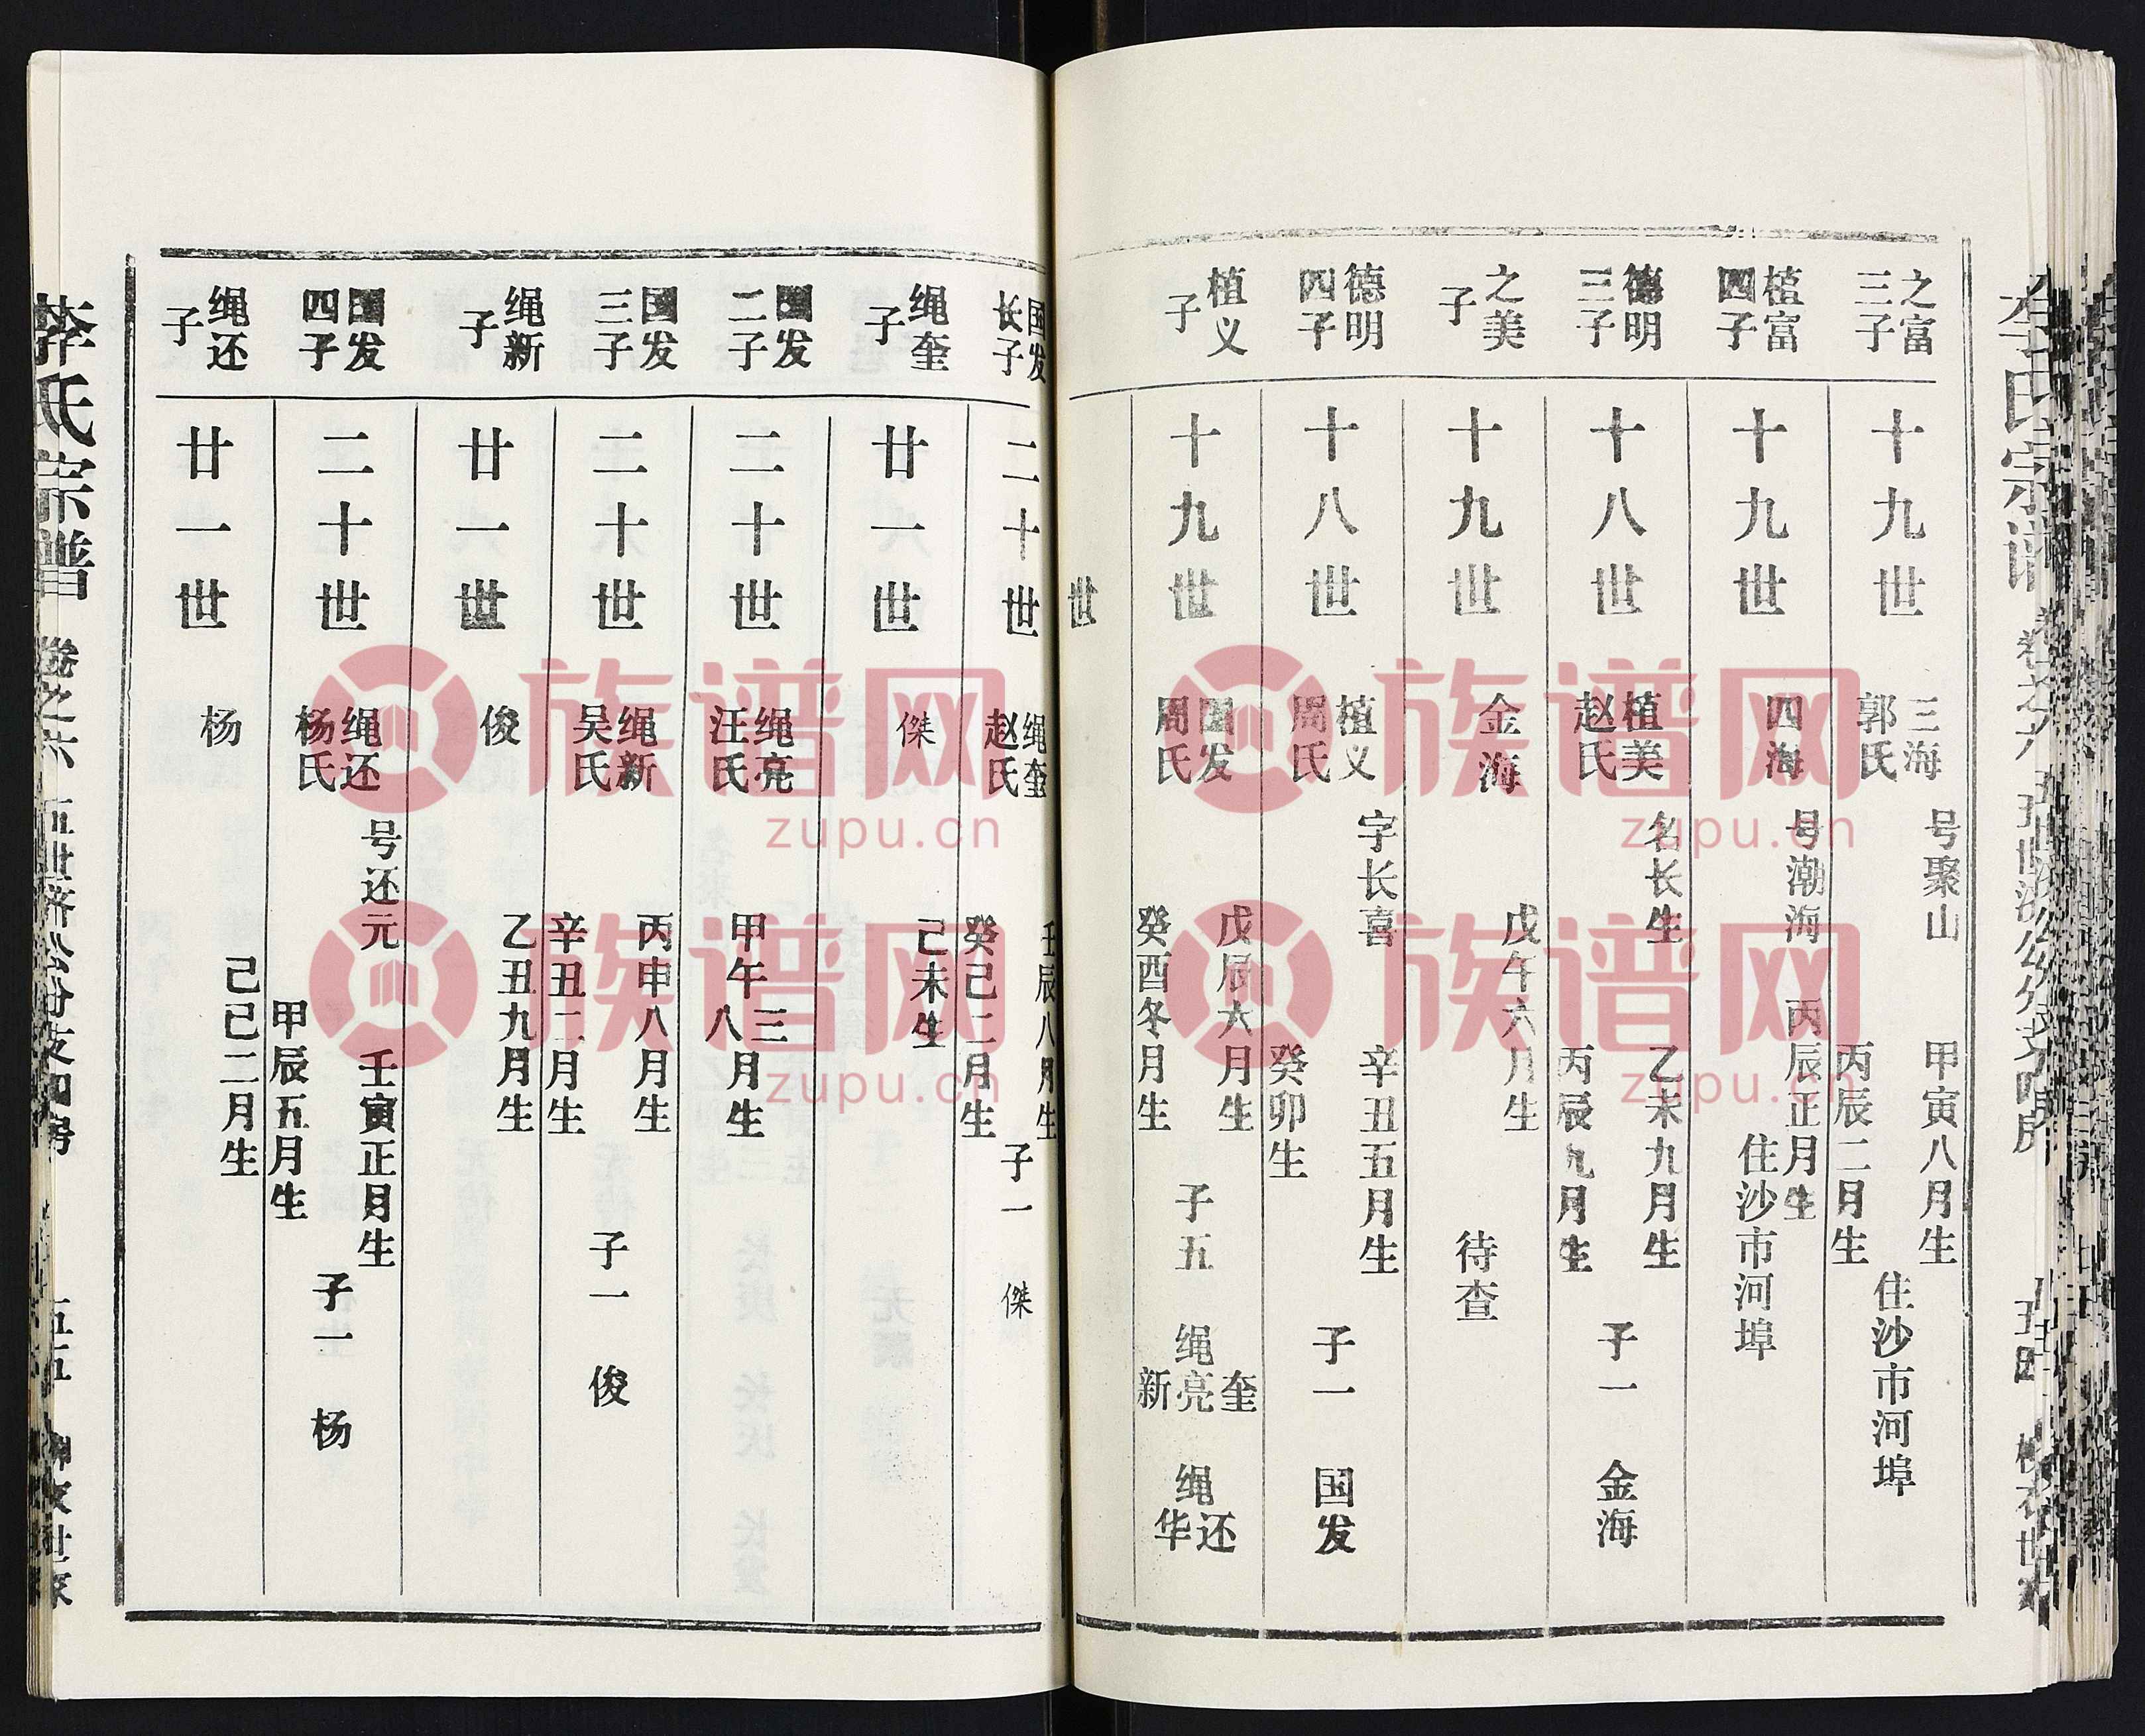 李氏宗谱
之富
三子
十九世
三海
郭氏
号聚山
甲寅八月生
丙辰二月生
住沙市河埠
植富
四子
十九世
四海
号潮海
丙辰正月生
住沙市河埠
德明
三子
十八世
植美
赵氏
名长生
乙未九月生
丙辰九月生
子一
金海
之美
子
十九世
金海
戊午六月生
待查
德明
四子
十八世
植义
周氏
字长喜
辛丑五月生
癸卯生
子一
国发
植义
子
十九世
国发
周氏
戊辰六月生
癸酉冬月生
子五
绳
奎
亮
新
绳
还
华
世
国发
长子
二十世
绳奎
赵氏
壬辰八月生
癸己二月生
子一
傑
绳奎
子
廿一世
傑
己未生
国发
二子
二十世
绳亮
汪氏
甲午三月生
八
国发
三子
二十世
绳新
吴氏
丙申八月生
辛丑二月生
子一
俊
绳新
子
廿一世
俊
乙丑九月生
国发
四子
二十世
绳还
杨氏
号还元
壬寅正月生
甲辰五月生
子一
杨
绳还
子
廿一世
杨
己己二月生
李氏宗谱
卷之六
五世济公分支四房
五五
族谱网
zupu.cn
族谱网
zupu.cn
族谱网
zupu.cn
族谱网
zupu.cn